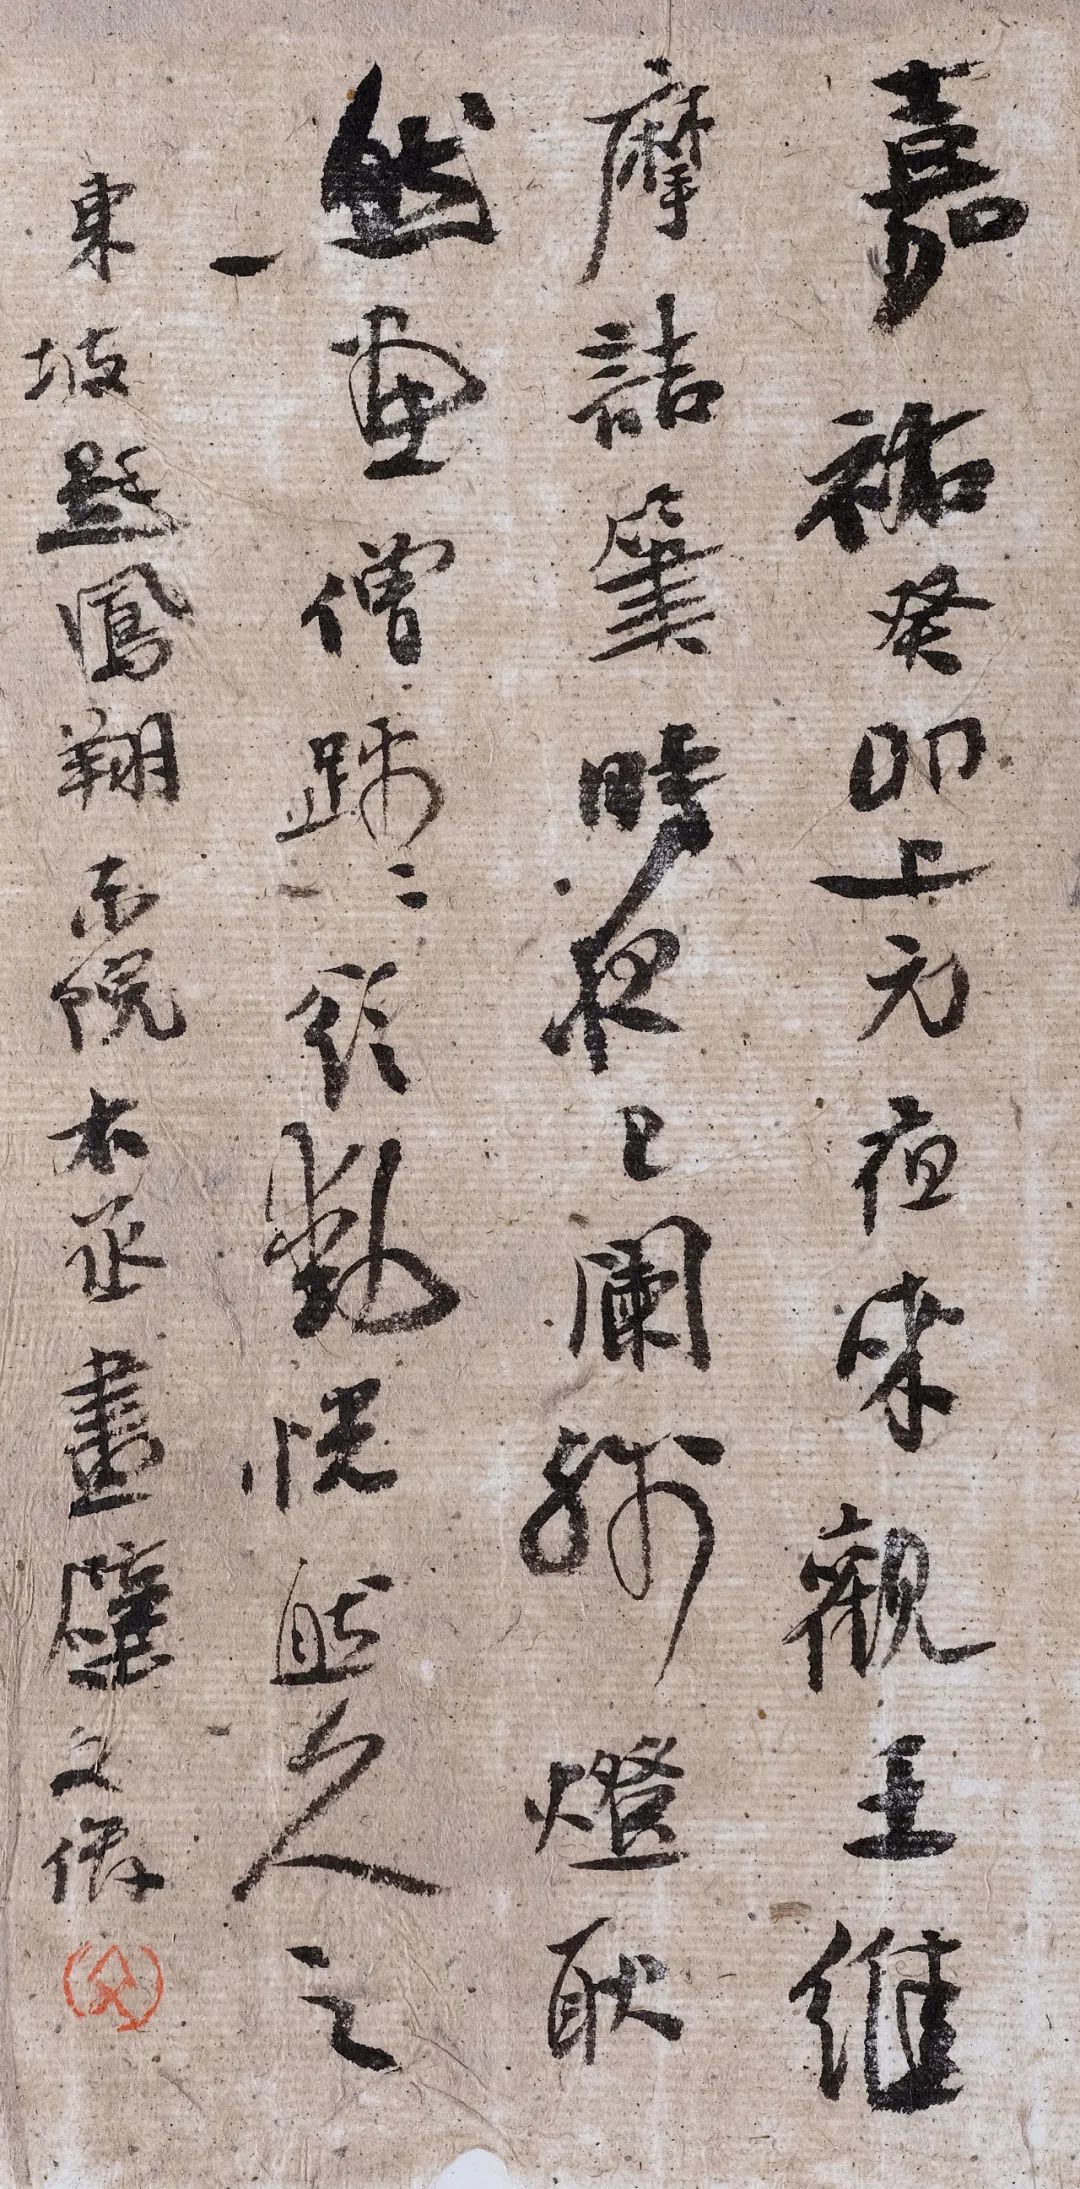 嘉祐癸卯上元夜來觀王維
摩詰筆時夜已闌殘燈耿
然画僧踽〻欲動恍然久之
東坡題鳳翔東院右丞畫壁文